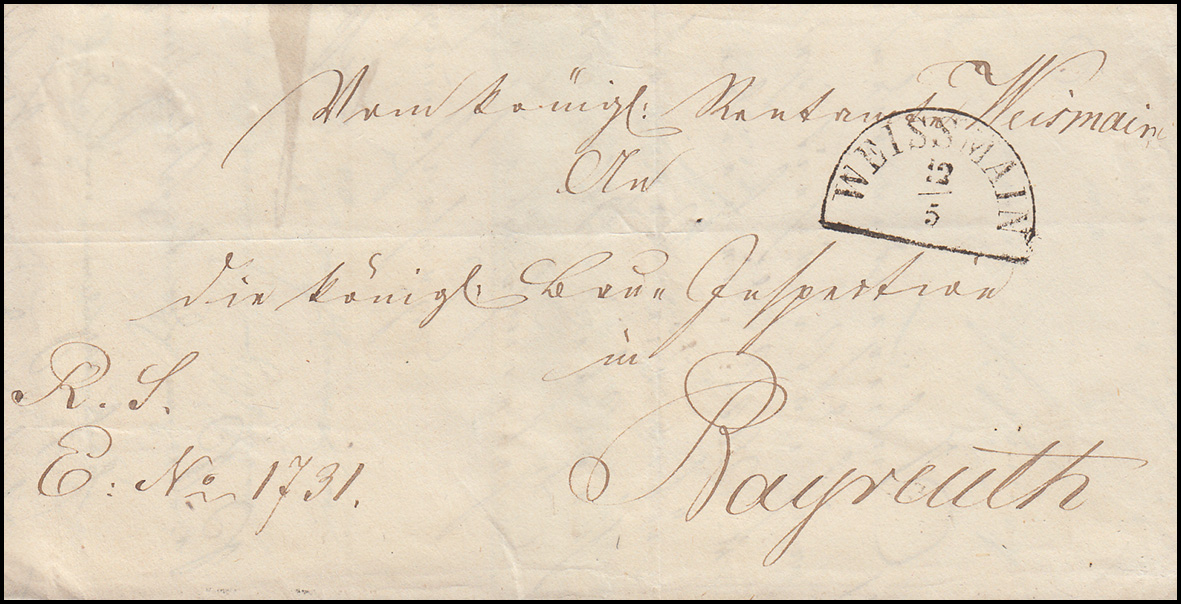 Vom königl: Rentamt Weismain
An
WEISSMAIN
5
die königl: Bau Inspection
in
R. S.
Bayreuth
E: No 1731.